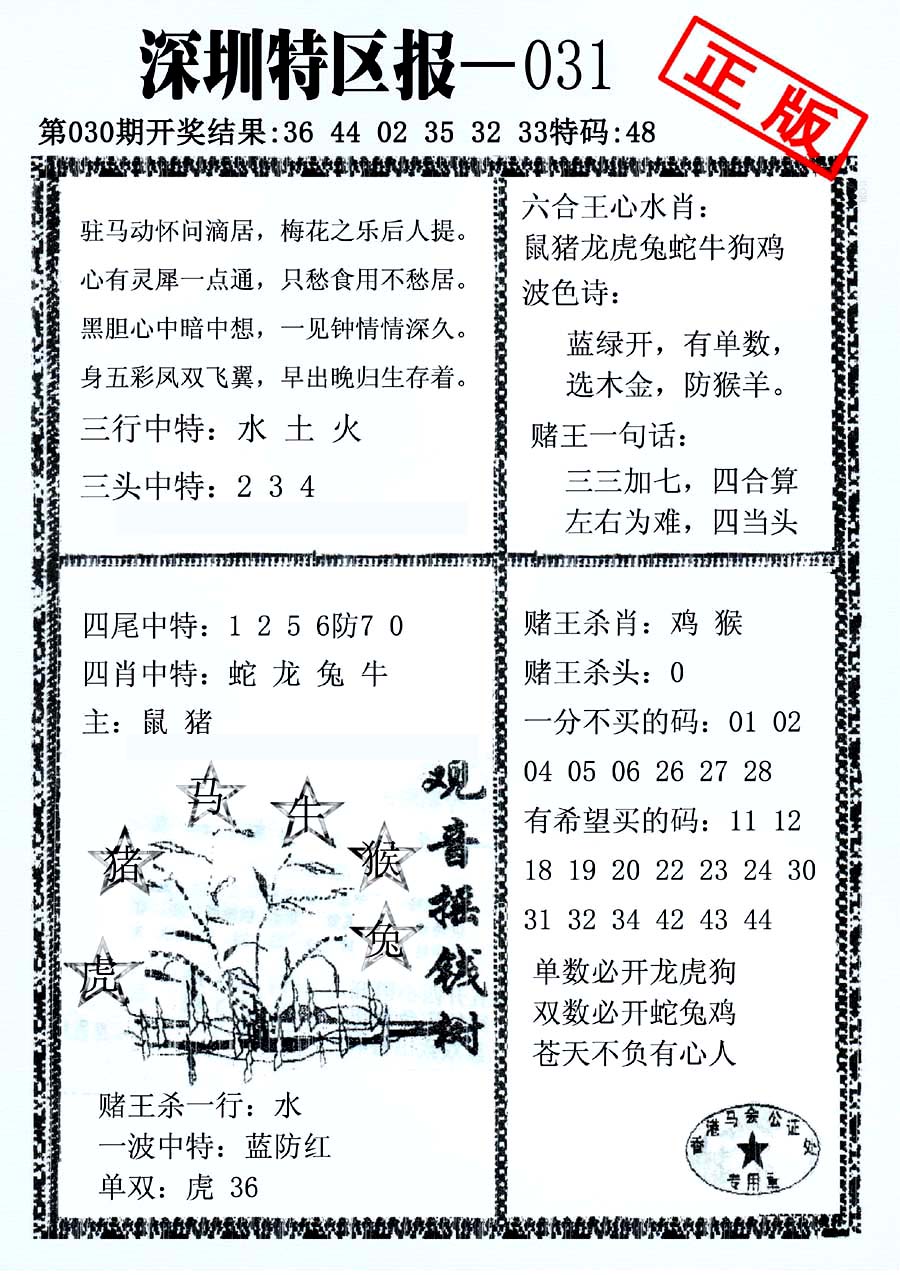 深圳特区报—031
正版
第030期开奖结果:36 44 02 35 32 33特码:48
驻马动怀问滴居，梅花之乐后人提。
心有灵犀一点通，只愁食用不愁居。
黑胆心中暗中想，一见钟情情深久。
身五彩凤双飞翼，早出晚归生存着。
三行中特：水 土 火
三头中特：2 3 4
六合王心水肖：
鼠猪龙虎兔蛇牛狗鸡
波色诗：
蓝绿开，有单数，
选木金，防猴羊。
赌王一句话：
三三加七，四合算
左右为难，四当头
四尾中特：1 2 5 6防7 0
四肖中特：蛇 龙 兔 牛
主：鼠 猪
马
牛
猪
猴
兔
虎
观音摇钱树
赌王杀一行：水
一波中特：蓝防红
单双：虎 36
赌王杀肖：鸡 猴
赌王杀头：0
一分不买的码：01 02
04 05 06 26 27 28
有希望买的码：11 12
18 19 20 22 23 24 30
31 32 34 42 43 44
单数必开龙虎狗
双数必开蛇兔鸡
苍天不负有心人
香港马会公证处
专用